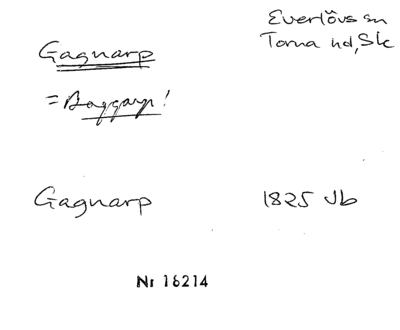 Everlövs sn
Torna hd, Sk
Gagnarp
= Baggarp!
Gagnarp 1825 Jb
Nr 16214